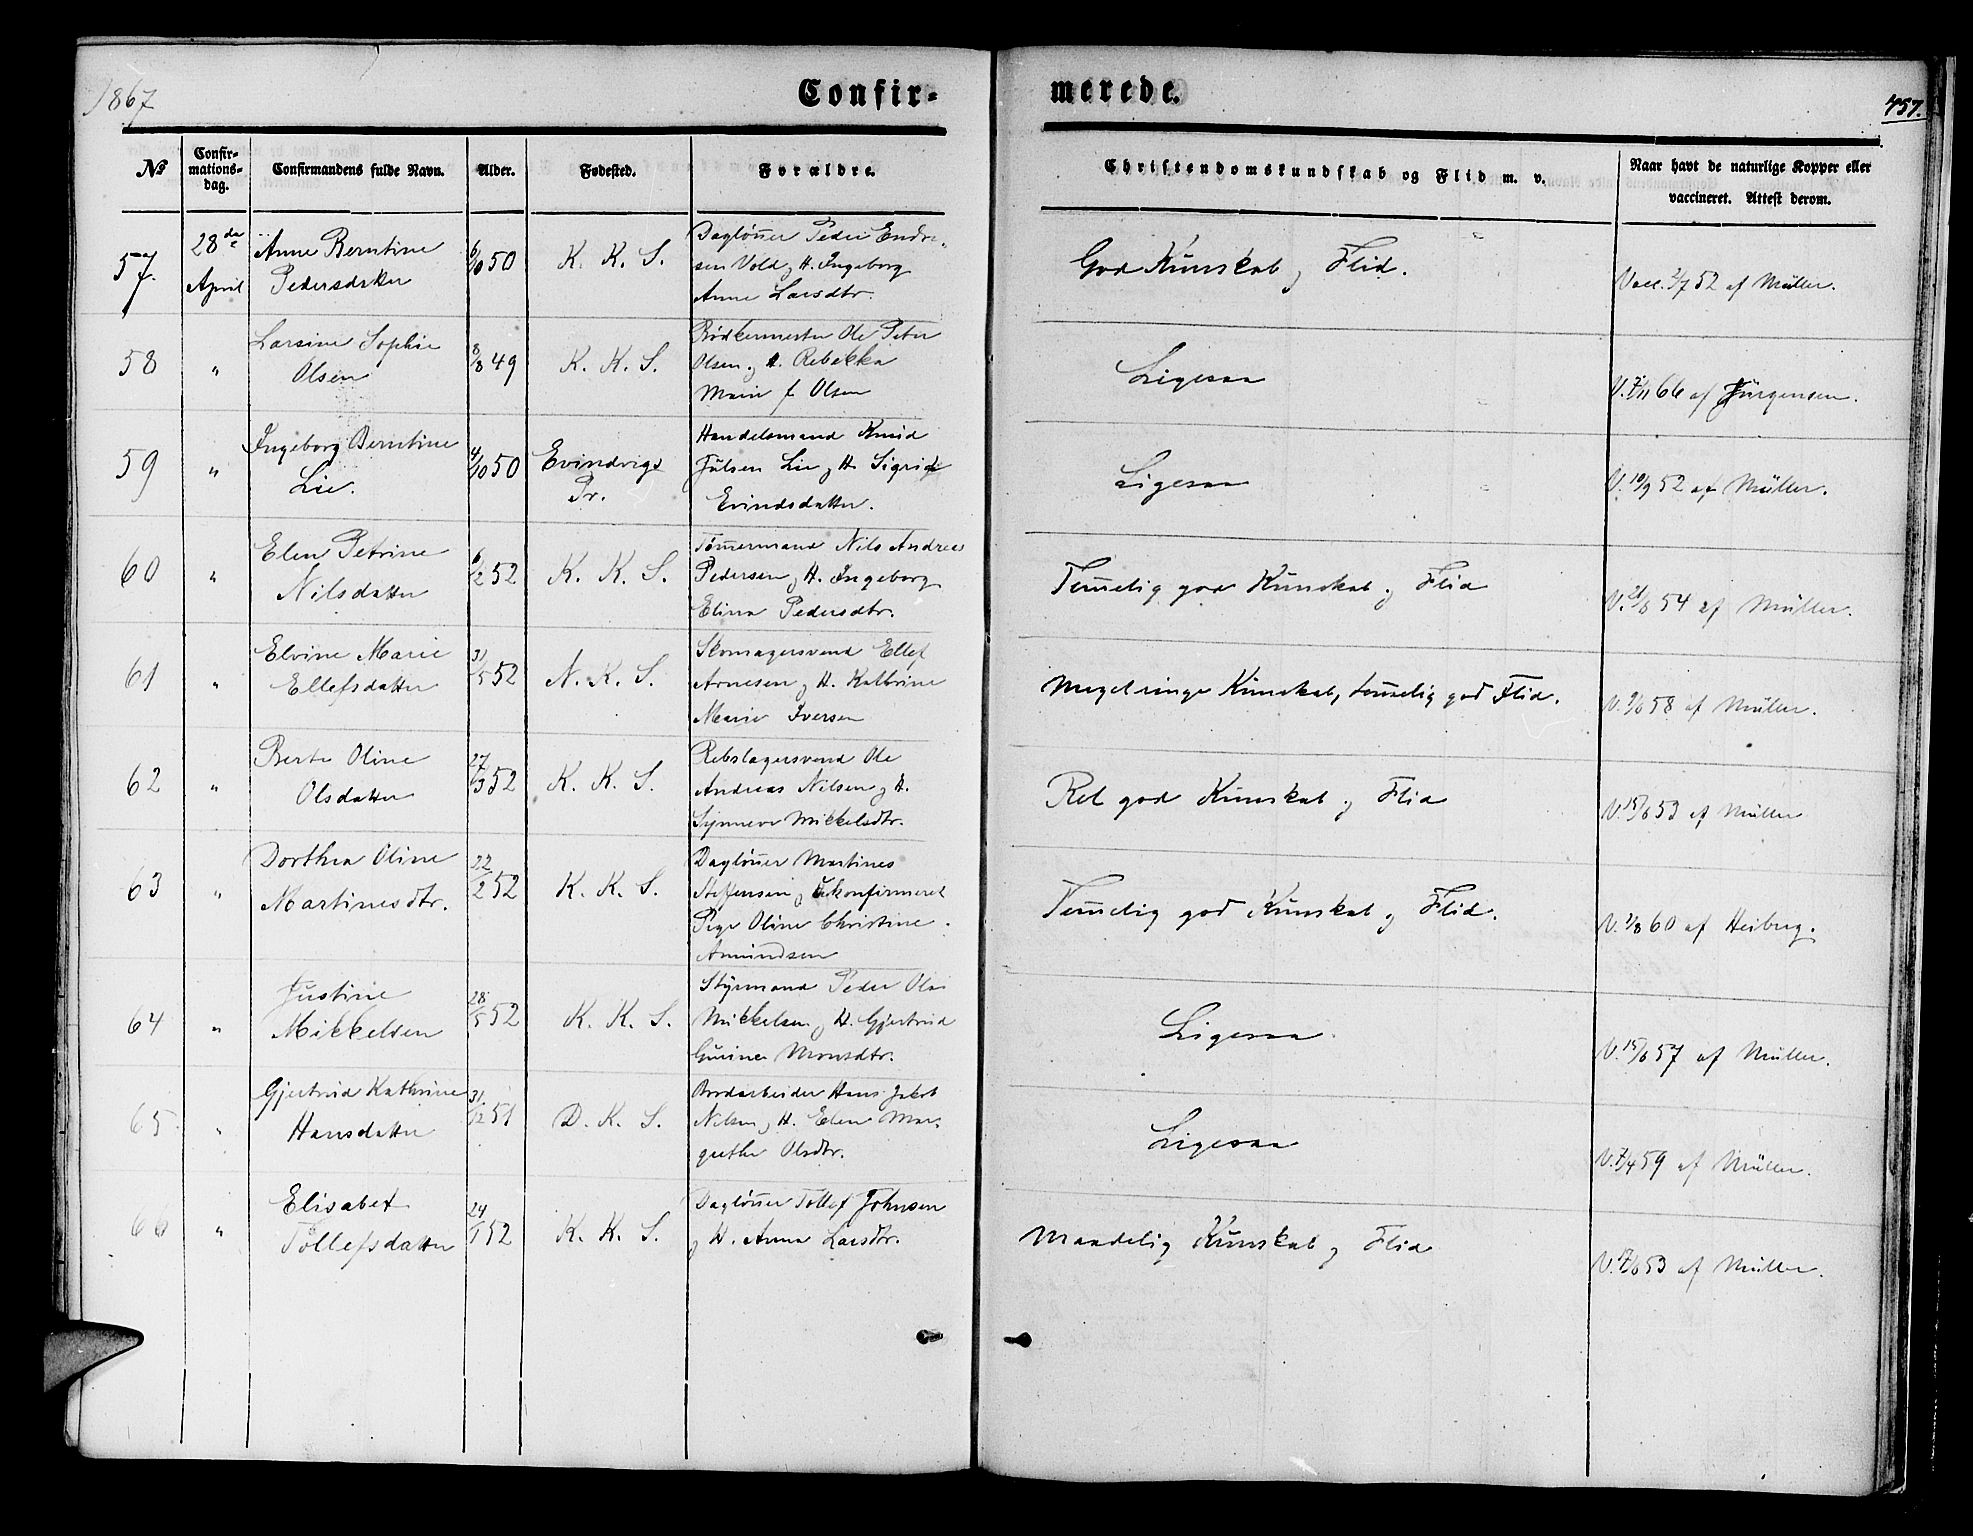 1867
Confir-
merede.
457.
No
Confir-
mations-
dag.
Confirmandens fulde Navn.
Alder.
Fødested.
Forældre.
Christendomskundskab og Flid m. v.
Naar havt de naturlige Kopper eller
vaccineret. Attest derom.
57
28de
April
Anne Berntine
Pedersdatter
6/10 50
K. K. S.
Dagløn̄er Peder Endre-
sen Vold og H. Ingeborg
Anne Larsdtr.
God Kunskab og Flid.
Vacc. 2/7 52 af Müller.
58
"
Larsine Sophie
Olsen
8/8 49
K. K. S.
Bødkermester Ole Peter
Olsen og H. Rebekka
Marie f. Olsen
Ligesaa
V. 7/11 66 af Jürgensen.
59
"
Ingeborg Berntine
Lie.
4/10 50
Evindvigs
Pr.
Handelsmand Knud
Julsen Lie og H. Sigride
Evindsdatter.
Ligesaa
V. 10/9 52 af Müller.
60
"
Elen Petrine
Nilsdatter
6/2 52
K. K. S.
Tøm̄ermand Nils Andreas
Pedersen og H. Ingeborg
Elina Pedersdtr.
Tem̄elig god Kunskab og Flid
V. 21/6 54 af Müller.
61
"
Elvine Marie
Ellefsdatter
31/5 52
N. K. S.
Skomagersvend Ellef
Arnesen og H. Kathrine
Marie Iversen
Meget ringe Kunskab, tem̄elig god Flid.
V. 9/6 58 af Müller.
62
"
Berte Oline
Olsdatter
27/3 52
K. K. S.
Rebslagersvend Ole
Andreas Nilsen og H.
Synneve Mikkelsdtr.
Ret god Kunskab og Flid
V. 15/6 53 af Müller
63
"
Dorthea Oline
Martinesdtr.
22/2 52
K. K. S.
Dagløn̄er Martines
Steffensen og ukonfirmeret
Pige Oline Christine
Amundsen
Tem̄elig god Kunskab og Flid.
V. 1/8 60 af Heiberg.
64
"
Justine
Mikkelsen
28/5 52
K. K. S.
Styrmand Peder Olai
Mikkelsen og H. Gjertrud
Gurine Monsdtr.
Ligesaa
V. 15/6 57 af Müller.
65
"
Gjertrud Kathrine
Hansdatter
31/12 51
D. K. S.
Bordarbeider Hans Jakob
Nilsen og H. Elen Mar-
grethe Olsdtr.
Ligesaa
V. 7/4 59 af Müller.
66
"
Elisabet
Tollefsdatter
24/1 52
K. K. S.
Dagløn̄er Tollef Johnsen
og H. Anna Larsdtr.
Maadelig Kunskab og Flid
V. 17/6 53 af Müller.